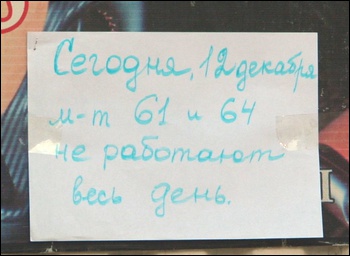 Сегодня, 12 декабря
м-т 61 и 64
не работают
весь день.